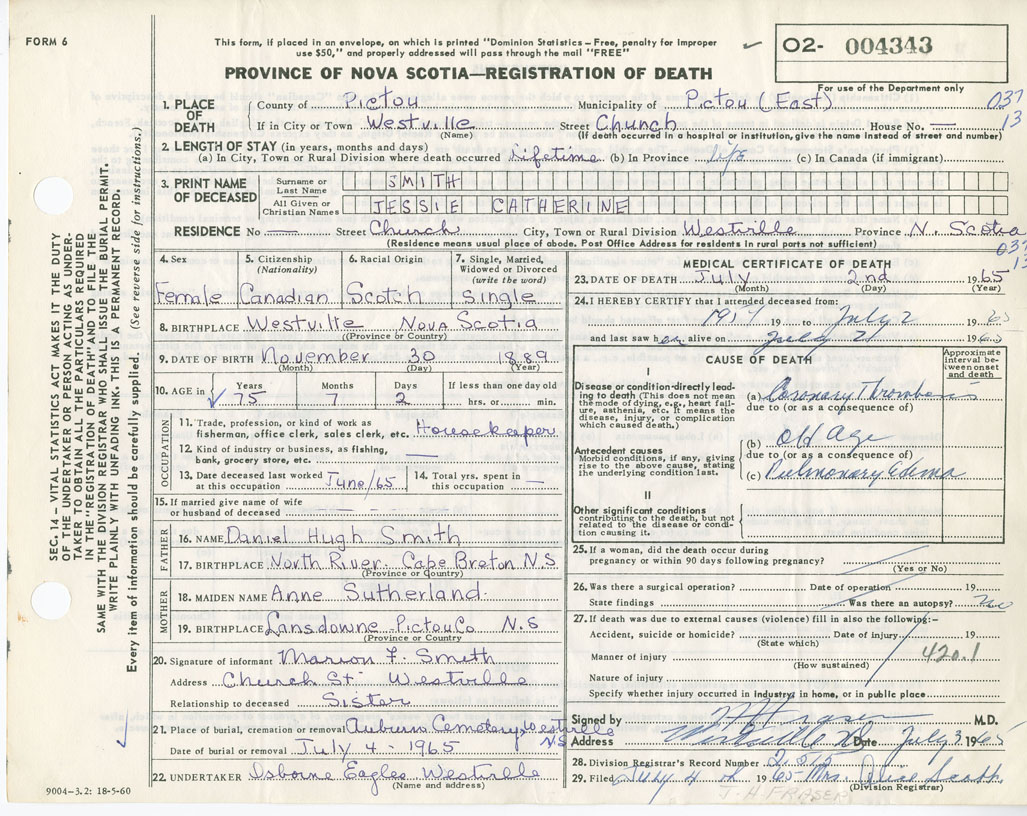 FORM 6
This form, if placed in an envelope, on which is printed "Dominion Statistics – Free, penalty for improper
use $50," and properly addressed will pass through the mail "FREE"
02- 004343
For use of the Department only
PROVINCE OF NOVA SCOTIA—REGISTRATION OF DEATH
037
13
1. PLACE OF DEATH
County of Pictou Municipality of Pictou (East)
If in City or Town Westville Street Church House No. —
(Name) (If death occurred in a hospital or institution, give the name instead of street and number)
2. LENGTH OF STAY (in years, months and days)
(a) In City, Town or Rural Division where death occurred Lifetime (b) In Province life (c) In Canada (if immigrant)
3. PRINT NAME OF DECEASED
Surname or Last Name SMITH
All Given or Christian Names JESSIE CATHERINE
RESIDENCE No — Street Church City, Town or Rural Division Westville Province N. Scotia
(Residence means usual place of abode. Post Office Address for residents in rural parts not sufficient)
037
13
4. Sex Female
5. Citizenship (Nationality) Canadian
6. Racial Origin Scotch
7. Single, Married, Widowed or Divorced (write the word) Single
8. BIRTHPLACE Westville Nova Scotia
(Province or Country)
9. DATE OF BIRTH November 30 1889
(Month) (Day) (Year)
10. AGE in Years 75 Months 7 Days 2 If less than one day old hrs. or min.
OCCUPATION
11. Trade, profession, or kind of work as
fisherman, office clerk, sales clerk, etc. Housekeeper
12. Kind of industry or business, as fishing,
bank, grocery store, etc. —
13. Date deceased last worked at this occupation June/65
14. Total yrs. spent in this occupation —
15. If married give name of wife
or husband of deceased — —
FATHER
16. NAME Daniel Hugh Smith
17. BIRTHPLACE North River. Cape Breton N.S
(Province or Country)
MOTHER
18. MAIDEN NAME Anne Sutherland
19. BIRTHPLACE Lansdowne Pictou Co N.S
(Province or Country)
20. Signature of informant Marion F. Smith
Address Church St Westville
Relationship to deceased Sister
21. Place of burial, cremation or removal Auburn Cemetery, Westville
NS
Date of burial or removal July 4 - 1965
22. UNDERTAKER Osborne Eagles Westville
(Name and address)
9004–3.2: 18-5-60
MEDICAL CERTIFICATE OF DEATH
23. DATE OF DEATH July 2nd 1965
(Month) (Day) (Year)
24. I HEREBY CERTIFY that I attended deceased from:
1917 19 to July 2 1965
and last saw her alive on July 2 1965
CAUSE OF DEATH
Approximate interval between onset and death
I
Disease or condition directly leading to death (This does not mean the mode of dying, e.g., heart failure, asthenia, etc. It means the disease, injury, or complication which caused death.)
(a) Coronary Thrombosis
due to (or as a consequence of)
(b) Old Age
due to (or as a consequence of)
Antecedent causes
Morbid condition, if any, giving rise to the above cause, stating the underlying condition last.
(c) Pulmonary Edema
II
Other significant conditions
contributing to the death, but not related to the disease or condition causing it.
25. If a woman, did the death occur during
pregnancy or within 90 days following pregnancy?
(Yes or No)
26. Was there a surgical operation? Date of operation 19
State findings Was there an autopsy? no
27. If death was due to external causes (violence) fill in also the following:–
Accident, suicide or homicide? Date of injury 19
(State which)
Manner of injury 420.1
(How sustained)
Nature of injury
Specify whether injury occurred in industry, in home, or in public place
Signed by M.D.
Address Westville NS Date July 3 1965
28. Division Registrar's Record Number
29. Filed July 4 1965 Mrs. Alice
(Division Registrar)
J. H. FRASER
SEC. 14 – VITAL STATISTICS ACT MAKES IT THE DUTY
OF THE UNDERTAKER OR PERSON ACTING AS UNDER-
TAKER TO OBTAIN ALL THE PARTICULARS REQUIRED
IN THE "REGISTRATION OF DEATH" AND TO FILE THE
SAME WITH THE DIVISION REGISTRAR WHO SHALL ISSUE THE BURIAL PERMIT.
WRITE PLAINLY WITH UNFADING INK. THIS IS A PERMANENT RECORD.
Every item of information should be carefully supplied. (See reverse side for instructions.)